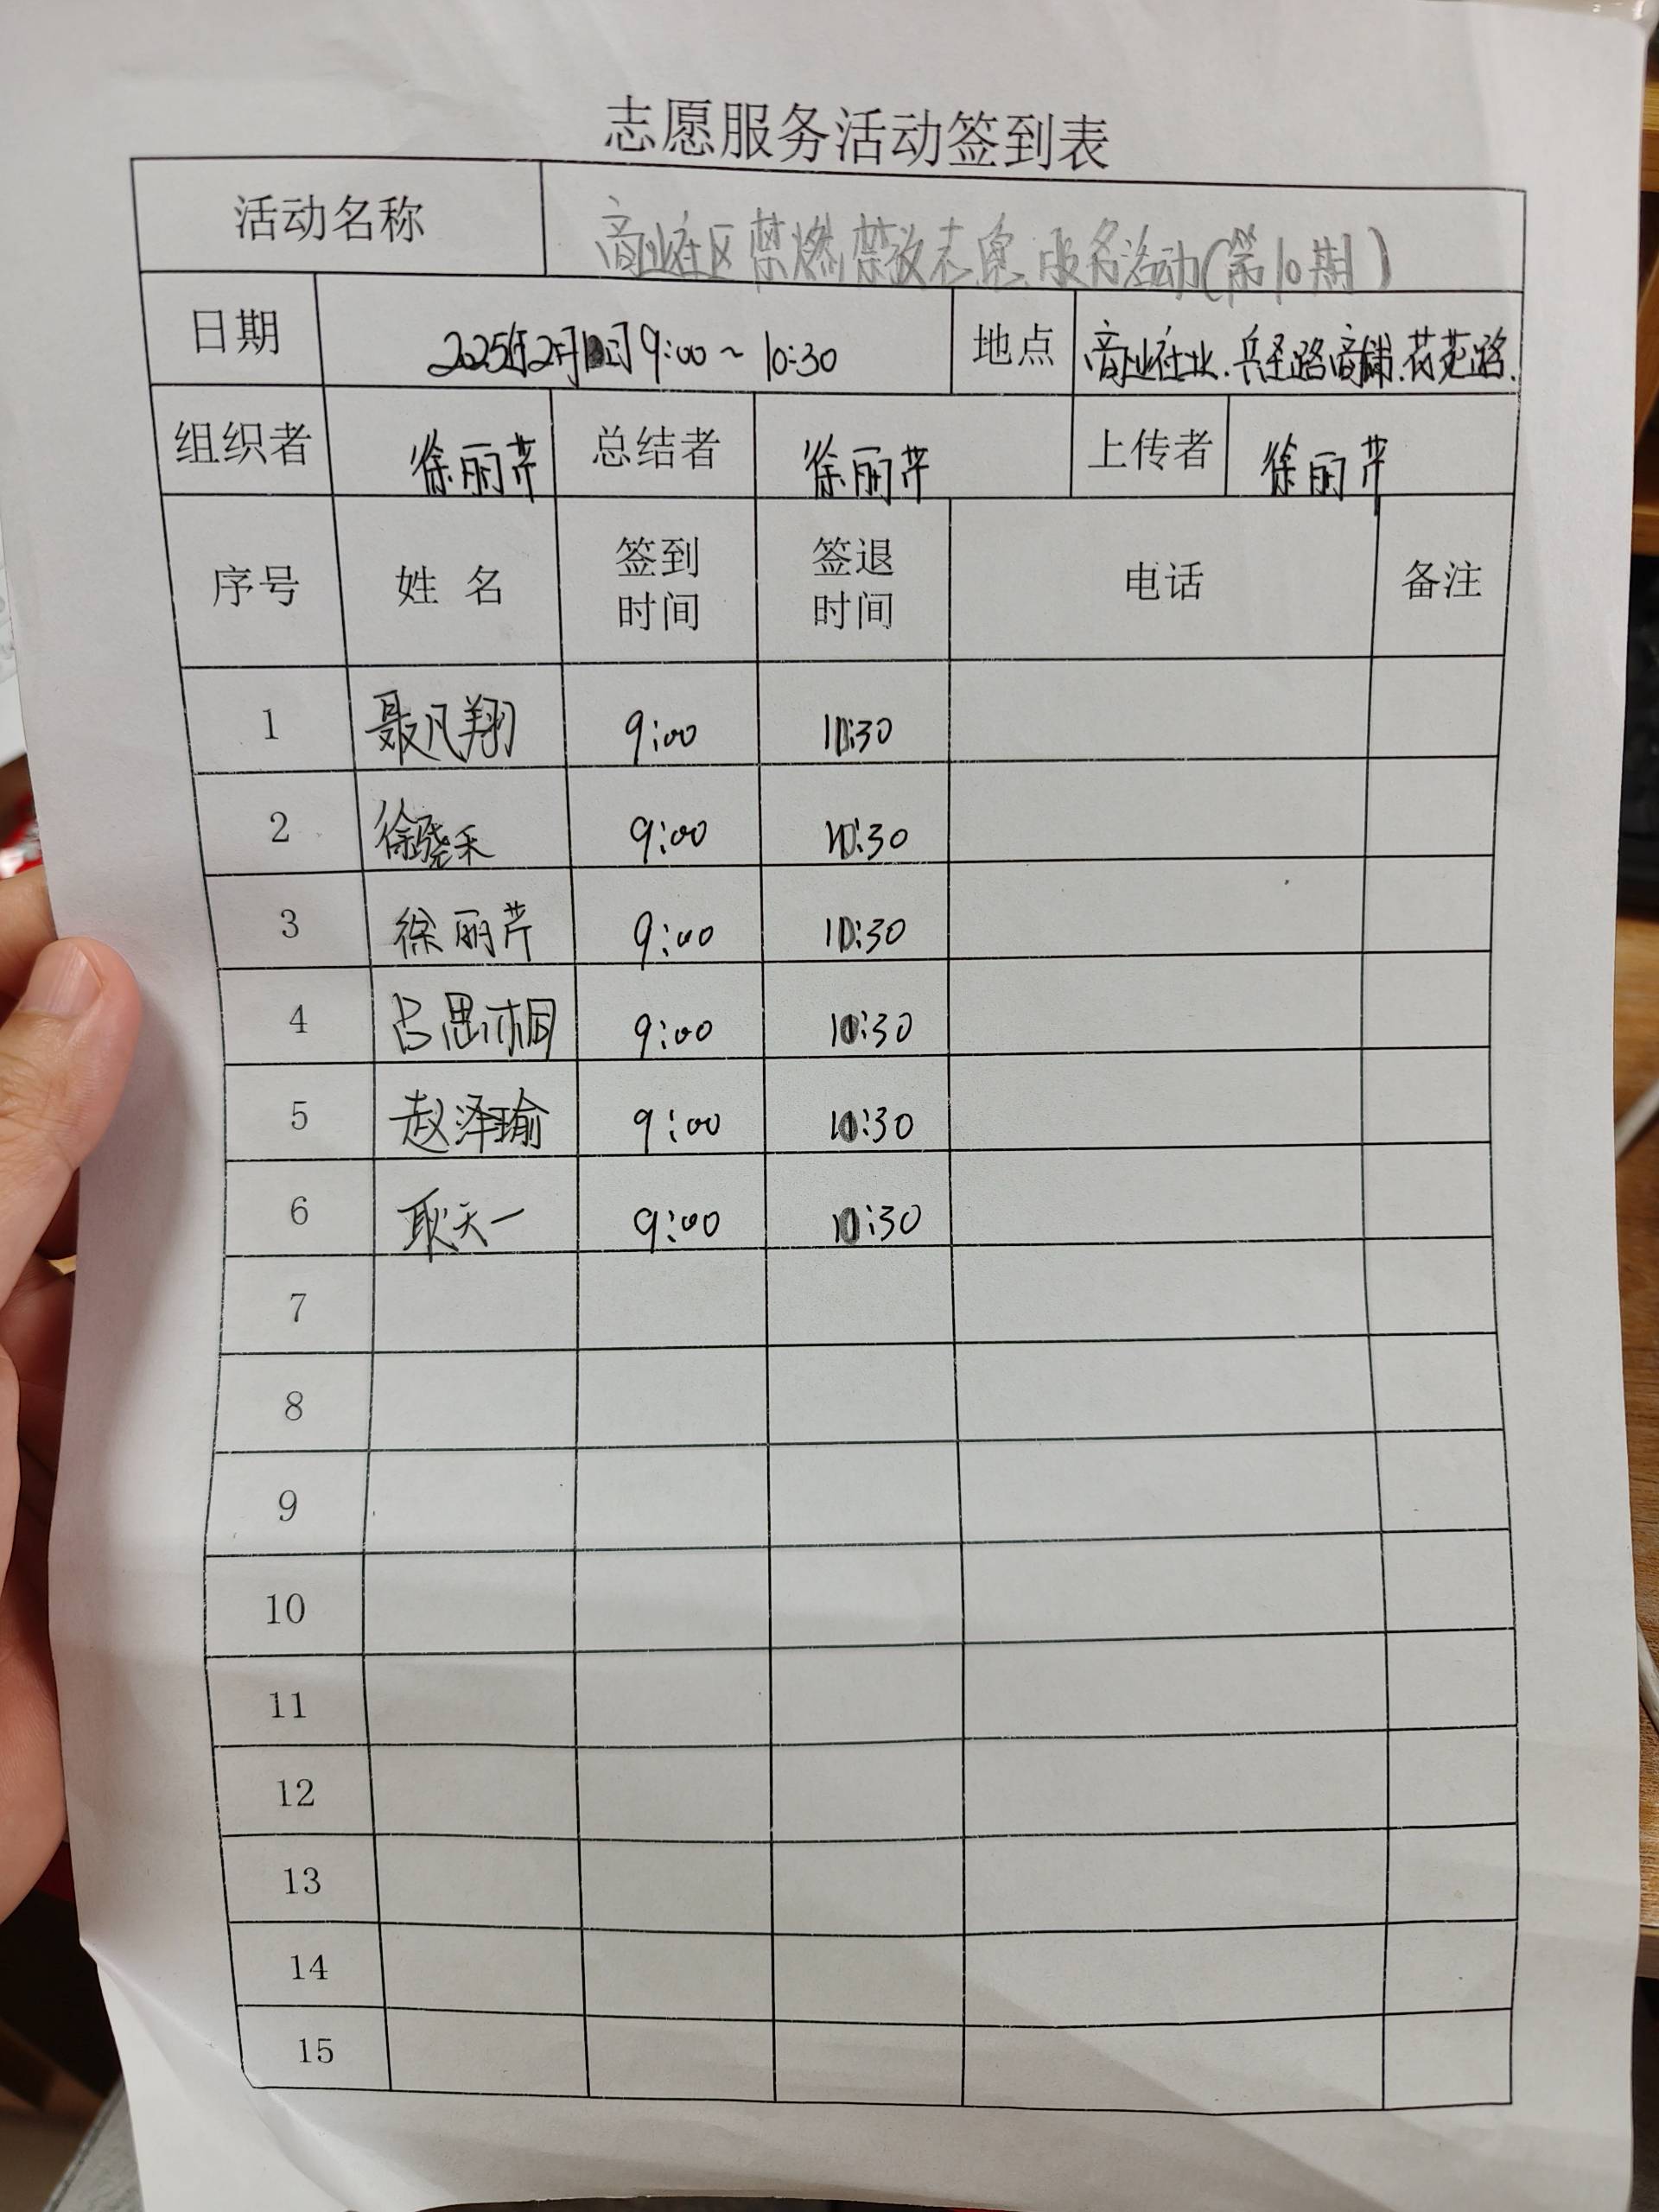 志愿服务活动签到表
活动名称 商业社区禁燃禁放志愿服务活动(第10期)
日期 2025年2月12日 9:00~10:30 地点 商业社业.兵圣路商铺.荷苑路.
组织者 徐丽芹 总结者 徐丽芹 上传者 徐丽芹
序号 姓 名 签到时间 签退时间 电话 备注
1 聂凡翔 9:00 10:30
2 徐晓禾 9:00 10:30
3 徐丽芹 9:00 10:30
4 占思桐 9:00 10:30
5 赵泽瑜 9:00 10:30
6 耿天一 9:00 10:30
7
8
9
10
11
12
13
14
15